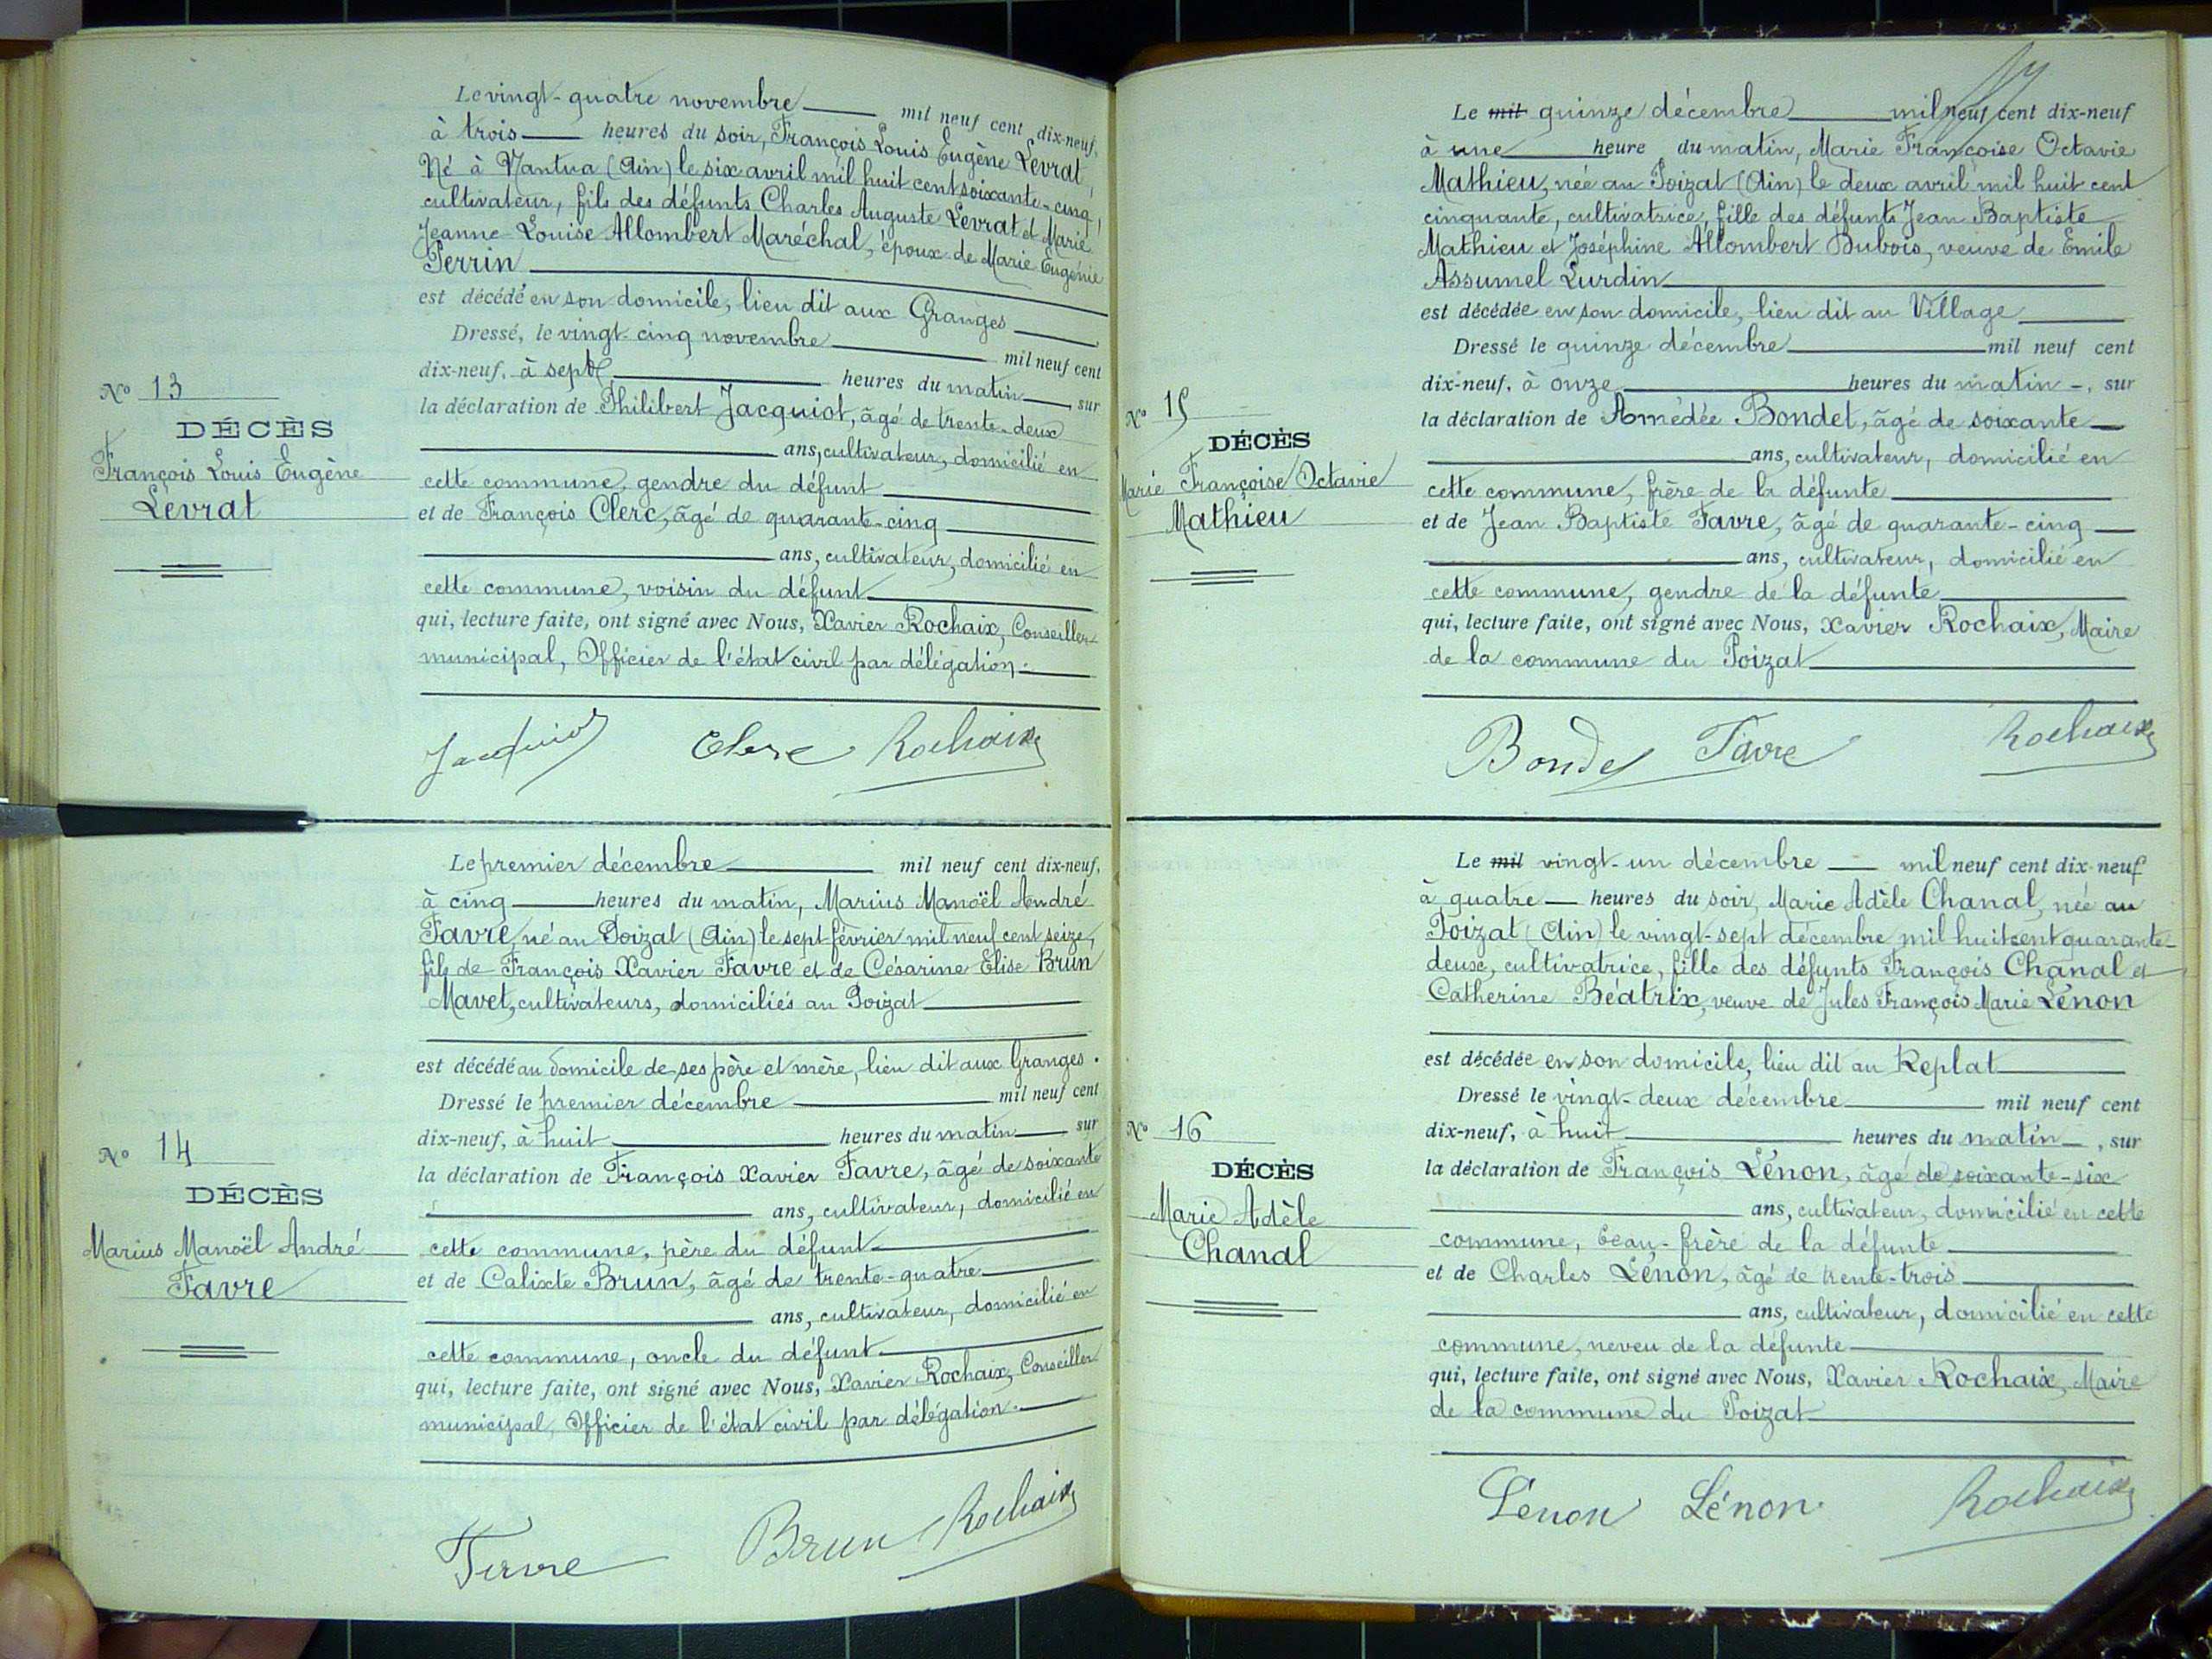 Le vingt-quatre novembre mil neuf cent dix-neuf,
à trois heures du soir, François Louis Eugène Levrat,
Né à Nantua (Ain) le six avril mil huit cent soixante-cinq,
cultivateur, fils des défunts Charles Auguste Levrat et Marie
Jeanne Louise Allombert Maréchal, époux de Marie Eugénie
Perrin
est décédé en son domicile, lieu dit aux Granges
Dressé, le vingt-cinq novembre mil neuf cent
dix-neuf, à sept heures du matin, sur
la déclaration de Philibert Jacquiot, âgé de trente-deux
ans, cultivateur, domicilié en
cette commune, gendre du défunt
et de François Clerc, âgé de quarante-cinq
ans, cultivateur, domicilié en
cette commune, voisin du défunt
qui, lecture faite, ont signé avec Nous, Xavier Rochaix, Conseiller
municipal, Officier de l'état civil par délégation.
N° 13
DÉCÈS
François Louis Eugène
Levrat
Jacquiot Clerc Rochaix
Le premier décembre mil neuf cent dix-neuf,
à cinq heures du matin, Marius Manoël André
Favre, né au Poizat (Ain) le sept février mil neuf cent seize,
fils de François Xavier Favre et de Césarine Elise Brun
Mavet, cultivateurs, domiciliés au Poizat
est décédé au domicile de ses père et mère, lieu dit aux Granges.
Dressé le premier décembre mil neuf cent
dix-neuf, à huit heures du matin sur
la déclaration de François Xavier Favre, âgé de soixante
ans, cultivateur, domicilié en
cette commune, père du défunt
et de Calixte Brun, âgé de trente-quatre
ans, cultivateur, domicilié en
cette commune, oncle du défunt
qui, lecture faite, ont signé avec Nous, Xavier Rochaix, Conseiller
municipal, Officier de l'état civil par délégation.
N° 14
DÉCÈS
Marius Manoël André
Favre
Favre Brun Rochaix
Le mil quinze décembre mil neuf cent dix-neuf
à une heure du matin, Marie Françoise Octavie
Mathieu, née au Poizat (Ain) le deux avril mil huit cent
cinquante, cultivatrice, fille des défunts Jean Baptiste
Mathieu et Joséphine Allombert Dubois, veuve de Emile
Assumel Lurdin
est décédée en son domicile, lieu dit au Village
Dressé le quinze décembre mil neuf cent
dix-neuf, à onze heures du matin, sur
la déclaration de Amédée Bondet, âgé de soixante
ans, cultivateur, domicilié en
cette commune, frère de la défunte
et de Jean Baptiste Favre, âgé de quarante-cinq
ans, cultivateur, domicilié en
cette commune, gendre de la défunte
qui, lecture faite, ont signé avec Nous, Xavier Rochaix, Maire
de la commune du Poizat
N° 15
DÉCÈS
Marie Françoise Octavie
Mathieu
Bondet Favre Rochaix
Le mil vingt-un décembre mil neuf cent dix-neuf
à quatre heures du soir, Marie Adèle Chanal, née au
Poizat (Ain) le vingt-sept décembre mil huit cent quarante-
deux, cultivatrice, fille des défunts François Chanal et
Catherine Béatrix, veuve de Jules François Marie Lénon
est décédée en son domicile, lieu dit au Replat
Dressé le vingt-deux décembre mil neuf cent
dix-neuf, à huit heures du matin, sur
la déclaration de François Lénon, âgé de soixante-six
ans, cultivateur, domicilié en cette
commune, beau-frère de la défunte
et de Charles Lénon, âgé de trente-trois
ans, cultivateur, domicilié en cette
commune, neveu de la défunte
qui, lecture faite, ont signé avec Nous, Xavier Rochaix, Maire
de la commune du Poizat
N° 16
DÉCÈS
Marie Adèle
Chanal
Lénon Lénon Rochaix